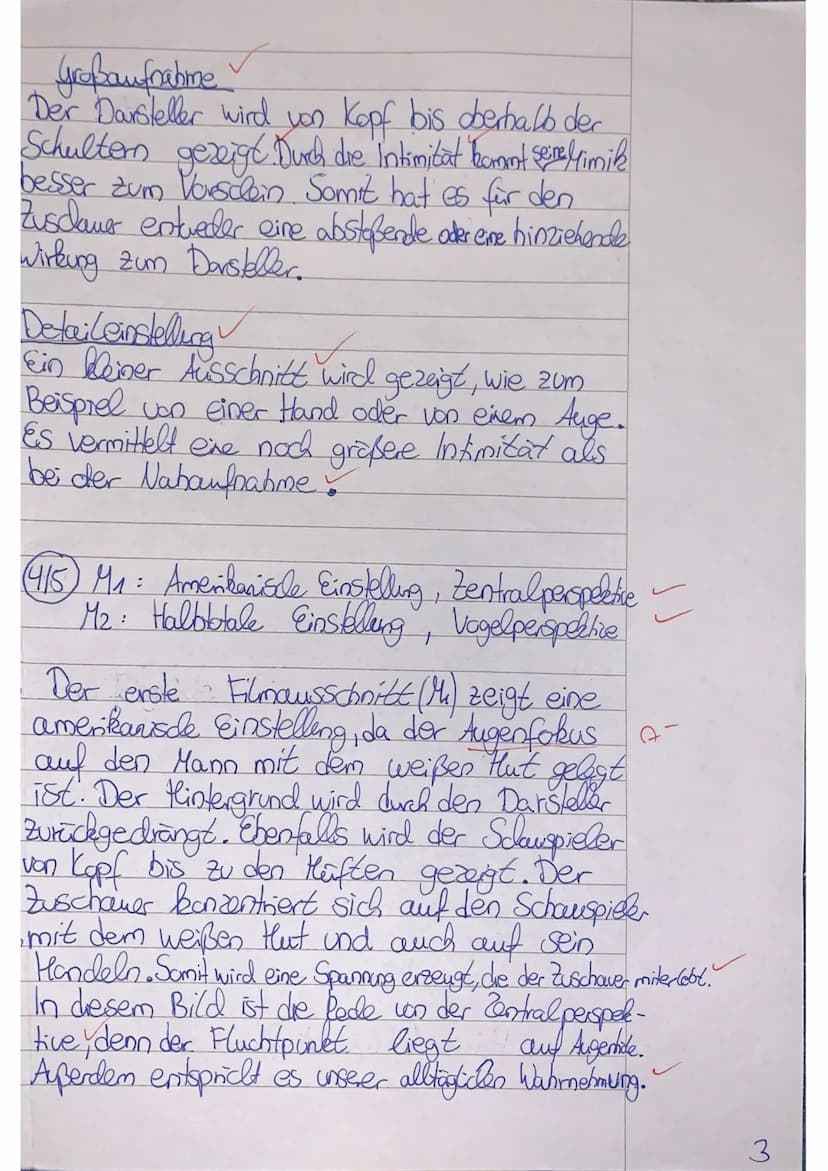 Großaufnahme
Der Darsteller wird von Kopf bis oberhalb der
Schultern gezeigt. Durch die Intimität kommt seine Mimik
besser zum Vorschein. Somit hat es für den
Zuschauer entweder eine abstoßende oder eine hinziehende
Wirkung zum Darsteller.
Detaileinstellung
Ein kleiner Ausschnitt wird gezeigt, wie zum
Beispiel von einer Hand oder von einem Auge.
Es vermittelt eine noch größere Intimität als
bei der Nahaufnahme.
4/5 M1: Amerikanische Einstellung, Zentralperspektive
M2: Halbtotale Einstellung, Vogelperspektive
Der erste Filmausschnitt (M1) zeigt eine
amerikanische Einstellung, da der Augenfokus
A-
auf den Mann mit dem weißen Hut gelegt
ist. Der Hintergrund wird durch den Darsteller
zurückgedrängt. Ebenfalls wird der Schauspieler
von Kopf bis zu den Hüften gezeigt. Der
Zuschauer konzentriert sich auf den Schauspieler
mit dem weißen Hut und auch auf sein
Handeln. Somit wird eine Spannung erzeugt, die der Zuschauer miterlebt.
In diesem Bild ist die Rede von der Zentralperspek-
tive, denn der Fluchtpunkt liegt auf Augenhöhe.
Außerdem entspricht es unserer alltäglichen Wahrnehmung.
3